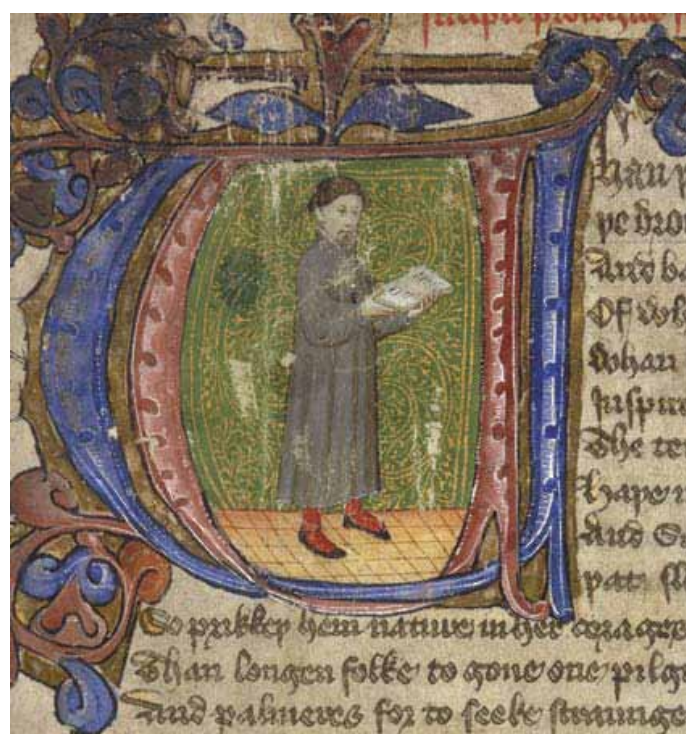 han
þe drou
And ba
Of wh
Whan
Inspire
The ten
Haþe
And
þat sl
So prikkeþ hem nature in her corages
Than longen folke to gone one pilgr
And palmeres for to seeke straunge